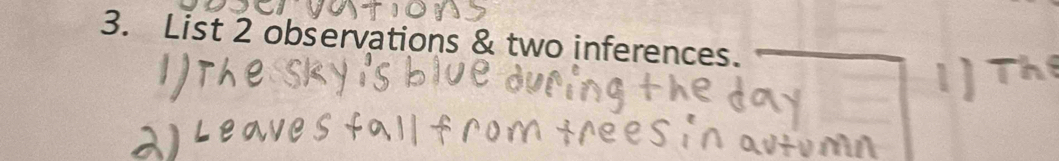 observations
3. List 2 observations & two inferences.
1) The sky is blue during the day
1) The
2) Leaves fall from trees in autumn